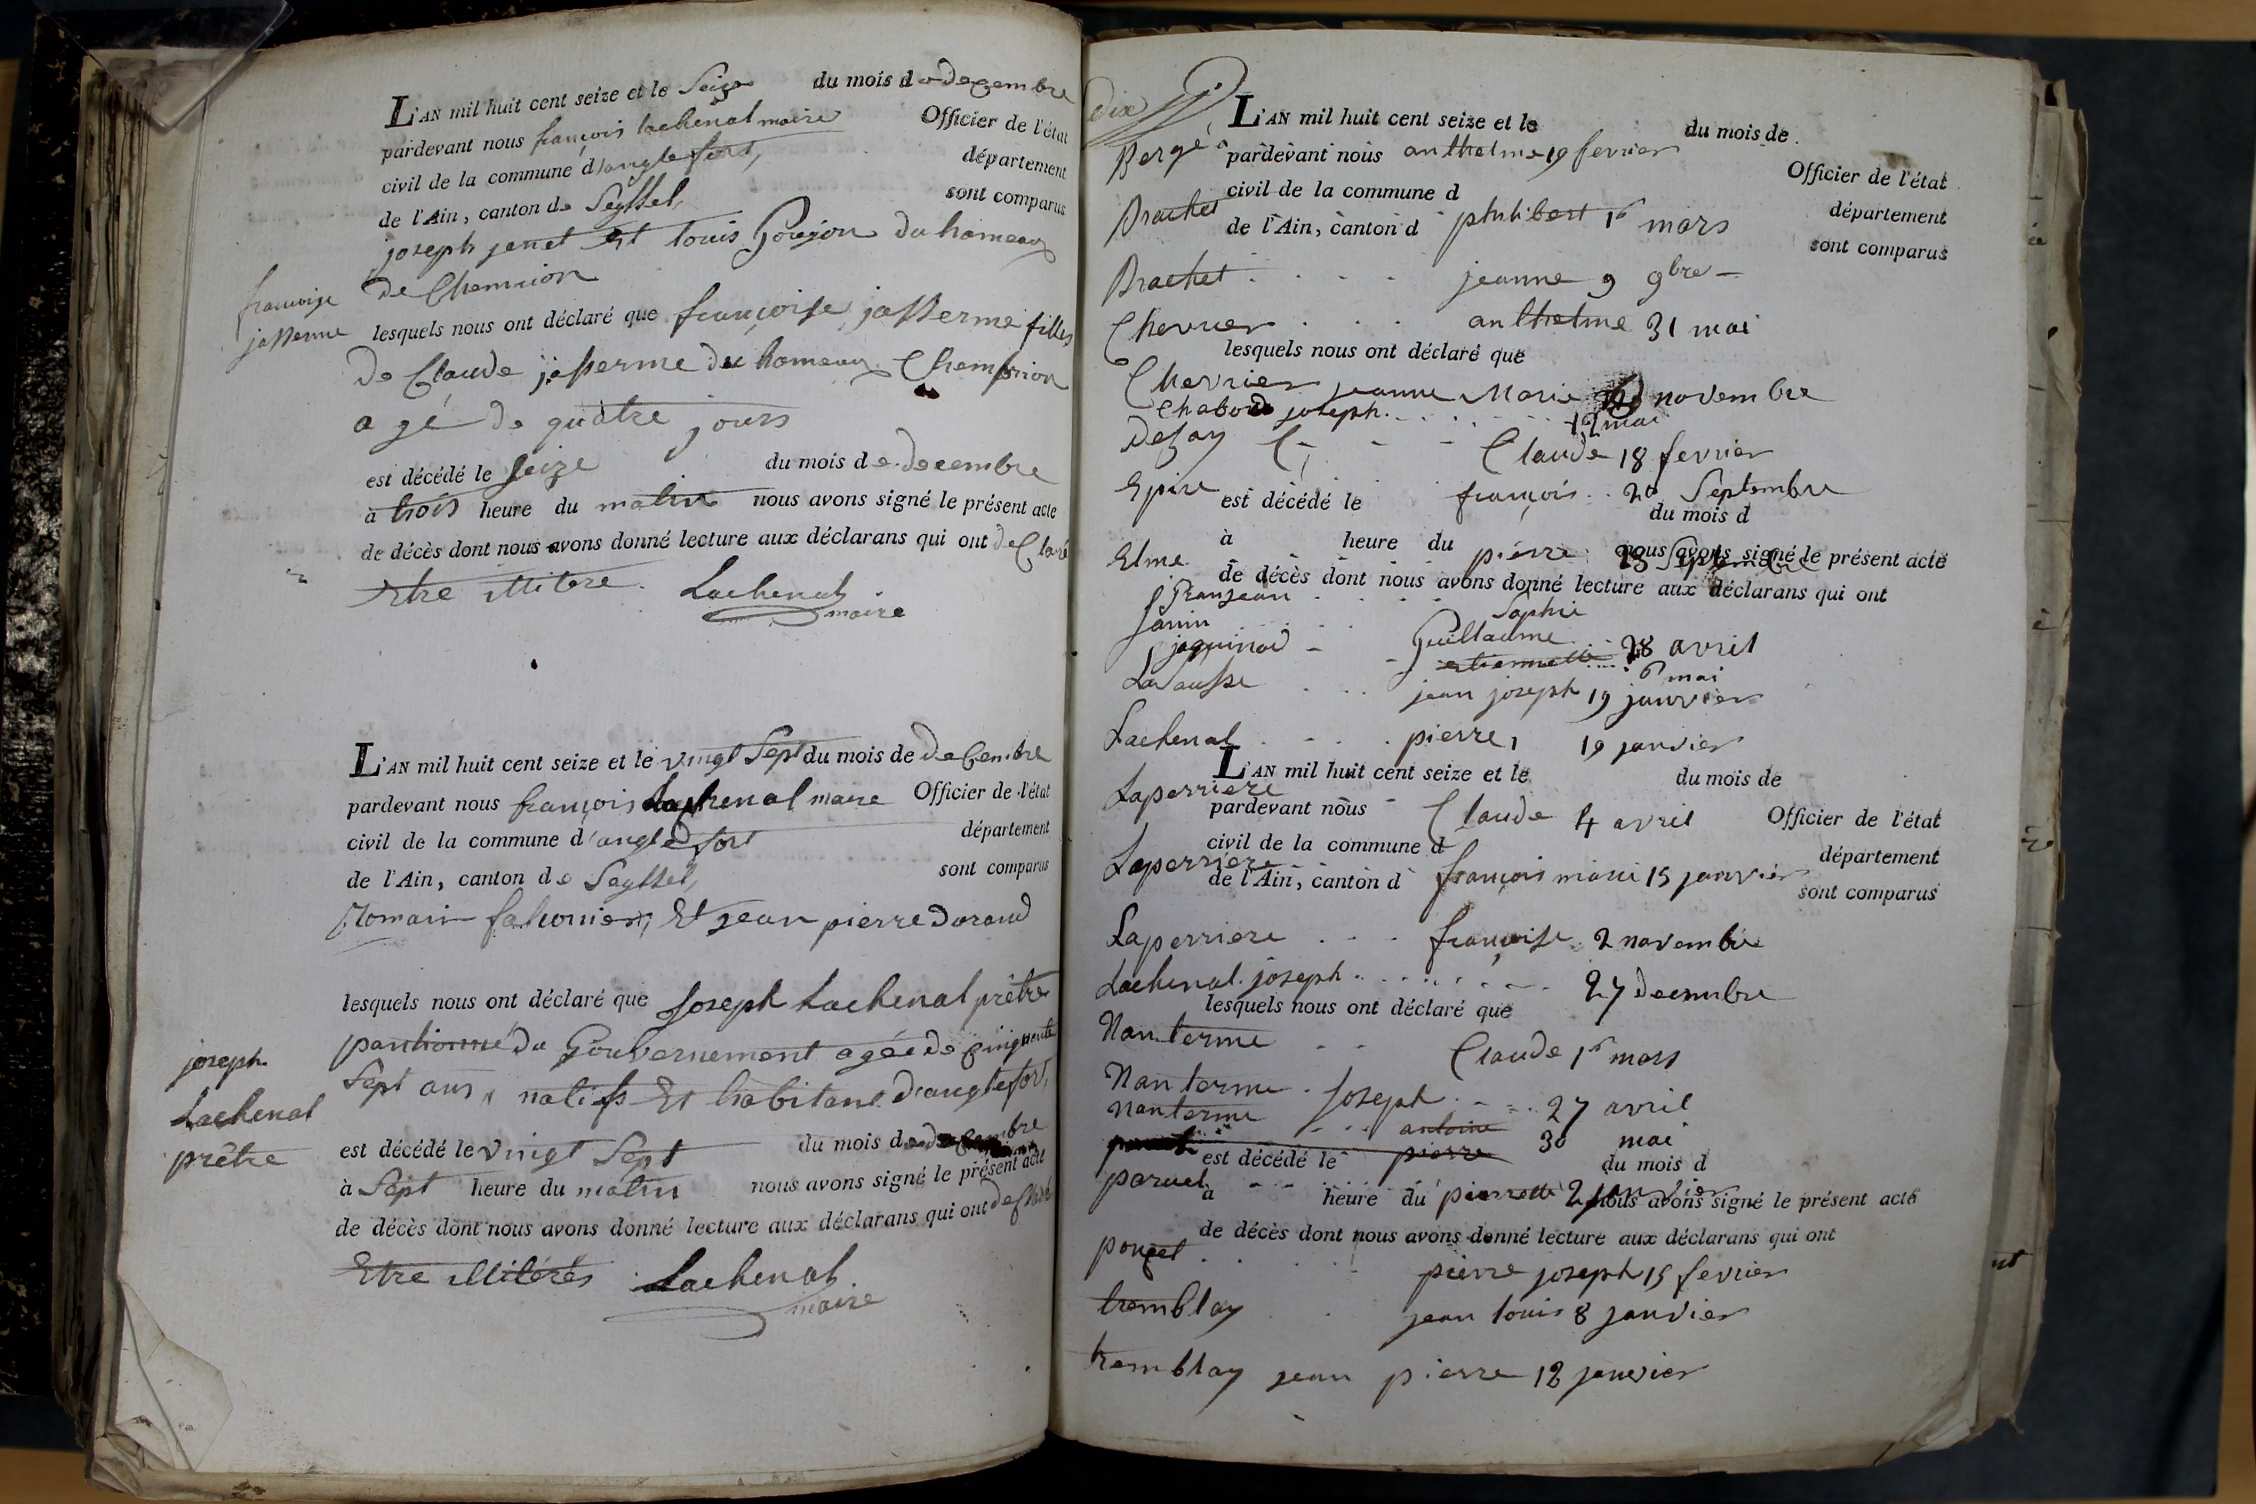 L'AN mil huit cent seize et le Seize du mois de decembre
pardevant nous françois lachenal maire Officier de l'état
civil de la commune d'anglefort, département
de l'Ain, canton de Seyssel, sont comparus
joseph jenet Et louis Goujon du hameaux
de Chemnion
françoise
jasserme
lesquels nous ont déclaré que françoise jasserme filles
de Claude jasserme du hameaux Chemnion
agé de quatre jours
est décédé le seize du mois de decembre
à trois heure du matin nous avons signé le présent acte
de décès dont nous avons donné lecture aux déclarans qui ont declaré
Etre illitere. Lachenal
maire
L'AN mil huit cent seize et le vingt Sept du mois de decembre
pardevant nous françois Lachenal maire Officier de l'état
civil de la commune d'anglefort département
de l'Ain, canton de Seyssel, sont comparus
Romain falconier, Et jean pierre Dorand
lesquels nous ont déclaré que joseph Lachenal prêtre
pantionné du Gouvernement agée de Cinquente
Sept ans, natifs Et habitant d'anglefort,
joseph
Lachenal
prêtre
est décédé le vingt Sept du mois de decembre
à Sept heure du matin nous avons signé le présent acte
de décès dont nous avons donné lecture aux déclarans qui ont declaré
Etre illiterés Lachenal
maire
L'AN mil huit cent seize et le du mois de
Bergé anthelme 19 fevrier
pardevant nous Officier de l'état
civil de la commune d département
Brachet philibert 1er mars
de l'Ain, canton d sont comparus
Brachet jeanne 9 9bre
Chevrier anthelme 31 mai
lesquels nous ont déclaré que
Chevrier jeanne Marie novembre
Chaboud joseph 12 mai
Dejay C Claude 18 fevrier
Epire françois 20 Septembre
est décédé le du mois d
Elme pierre 13 Septembre
à heure du nous avons signé le présent acte
de décès dont nous avons donné lecture aux déclarans qui ont
Granjean Sophie
janin Guillaume 28 avril
jaquinod etiennette 6 mai
Lavausse jean joseph 19 janvier
Lachenal pierre, 19 janvier
L'AN mil huit cent seize et le du mois de
Laperriere Claude 4 avril
pardevant nous Officier de l'état
civil de la commune d département
Laperriere françois marie 15 janvier
de l'Ain, canton d sont comparus
Laperriere françoise 2 novembre
Lachenal joseph 27 decembre
lesquels nous ont déclaré que
Nanterme Claude 1er mars
Nanterme joseph 27 avril
Nanterme antoine 30 mai
pierre
est décédé le du mois d
paruel pierrette 2 janvier
à heure du nous avons signé le présent acte
de décès dont nous avons donné lecture aux déclarans qui ont
pouget pierre joseph 15 fevrier
tremblay jean louis 8 janvier
tremblay jean pierre 12 janvier